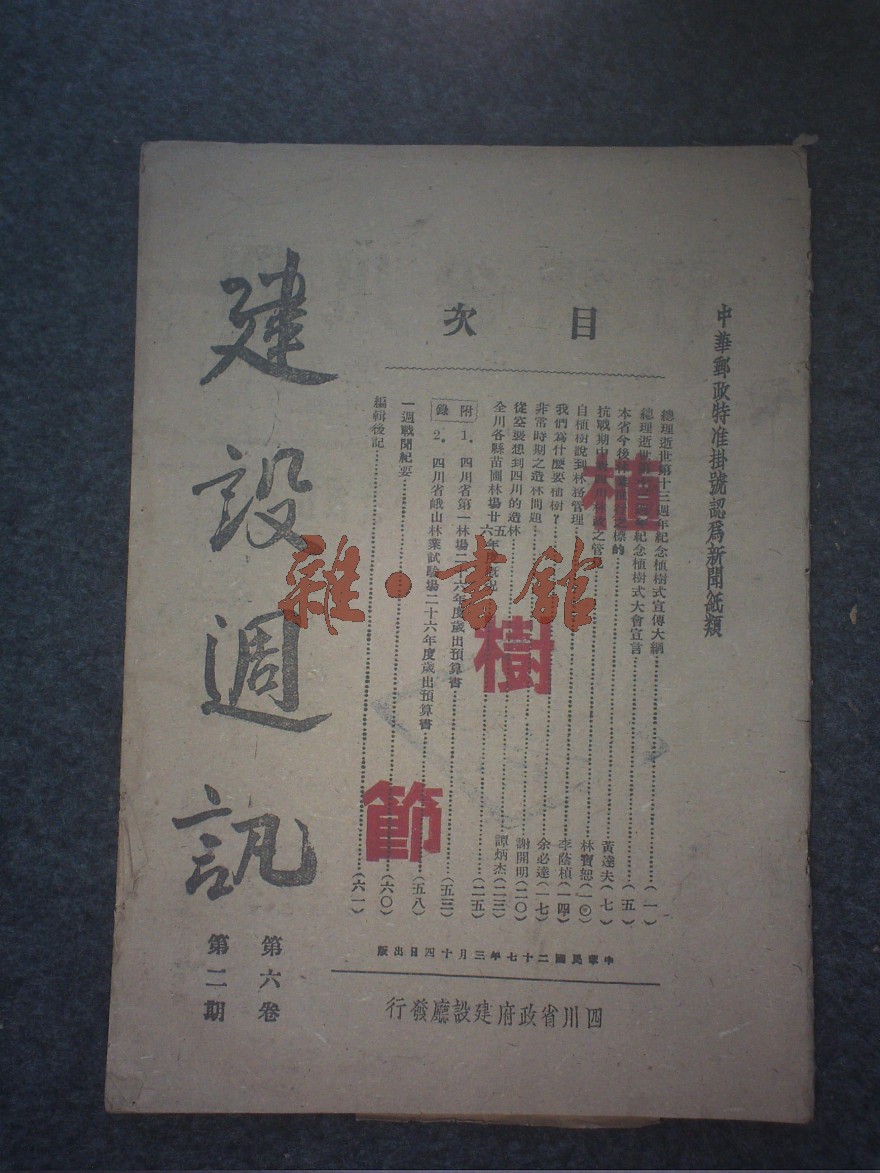 中華郵政特准掛號認爲新聞紙類
目次
總理逝世第十三週年紀念植樹式宣傳大綱(一)
總理逝世第十三週年紀念植樹式大會宣言(五)
本省今後林業之標的 黃達夫(七)
抗戰期中之管 林寶恕(一〇)
自植樹說到林務管理 李蔭植(一四)
我們爲什麼要植樹? 余必達(一七)
非常時期之造林問題 謝開明(二〇)
從空襲想到四川的造林 譚炳杰(二三)
全川各縣苗圃林場廿五六年概況(二五)
附錄
1.四川省第一林場二十六年度歲出預算書(五三)
2.四川省峨山林業試驗場二十六年度歲出預算書(五八)
一週戰聞紀要(六〇)
編輯後記(六一)
植樹節
中華民國二十七年三月十四日出版
四川省政府建設廳發行
建設週訊
第六卷
第二期
雜·書館